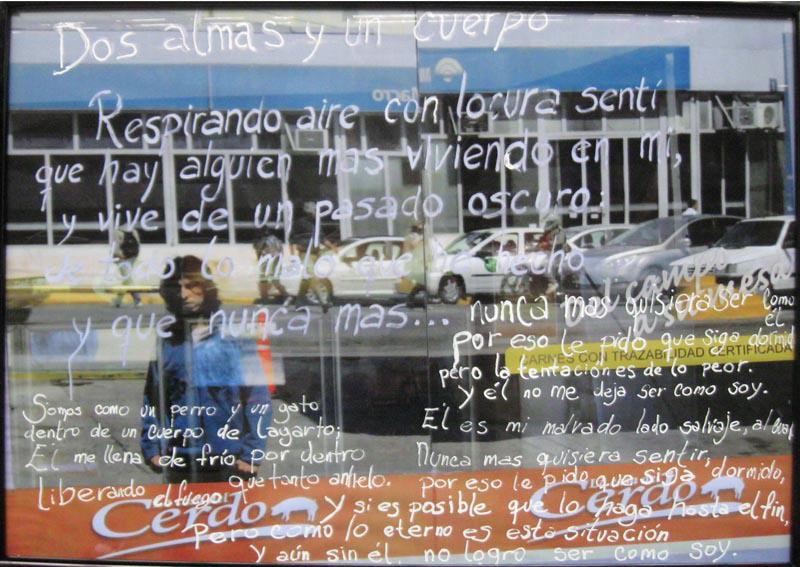 Dos almas y un cuerpo
Respirando aire con locura sentí
que hay alguien mas viviendo en mi,
y vive de un pasado oscuro:
de todo lo malo que ha hecho
y que nunca mas...
nunca mas quisiera ser como él
por eso le pido que siga dormido
pero la tentacion es de lo peor.
Y él no me deja ser como soy.
Somos como un perro y un gato
dentro de un cuerpo de lagarto;
El me llena de frío por dentro
liberando el fuego que tanto anhelo.
Él es mi malvado lado salvaje, al
Nunca mas quisiera sentir,
por eso le pido que siga dormido,
Y si es posible que lo haga hasta el fin,
Pero como lo eterno es esta situación
Y aún sin él, no logro ser como soy.
Macro
campo
a su mesa
CARNES CON TRAZABILIDAD CERTIFICADA
Cerdo
Cerdo